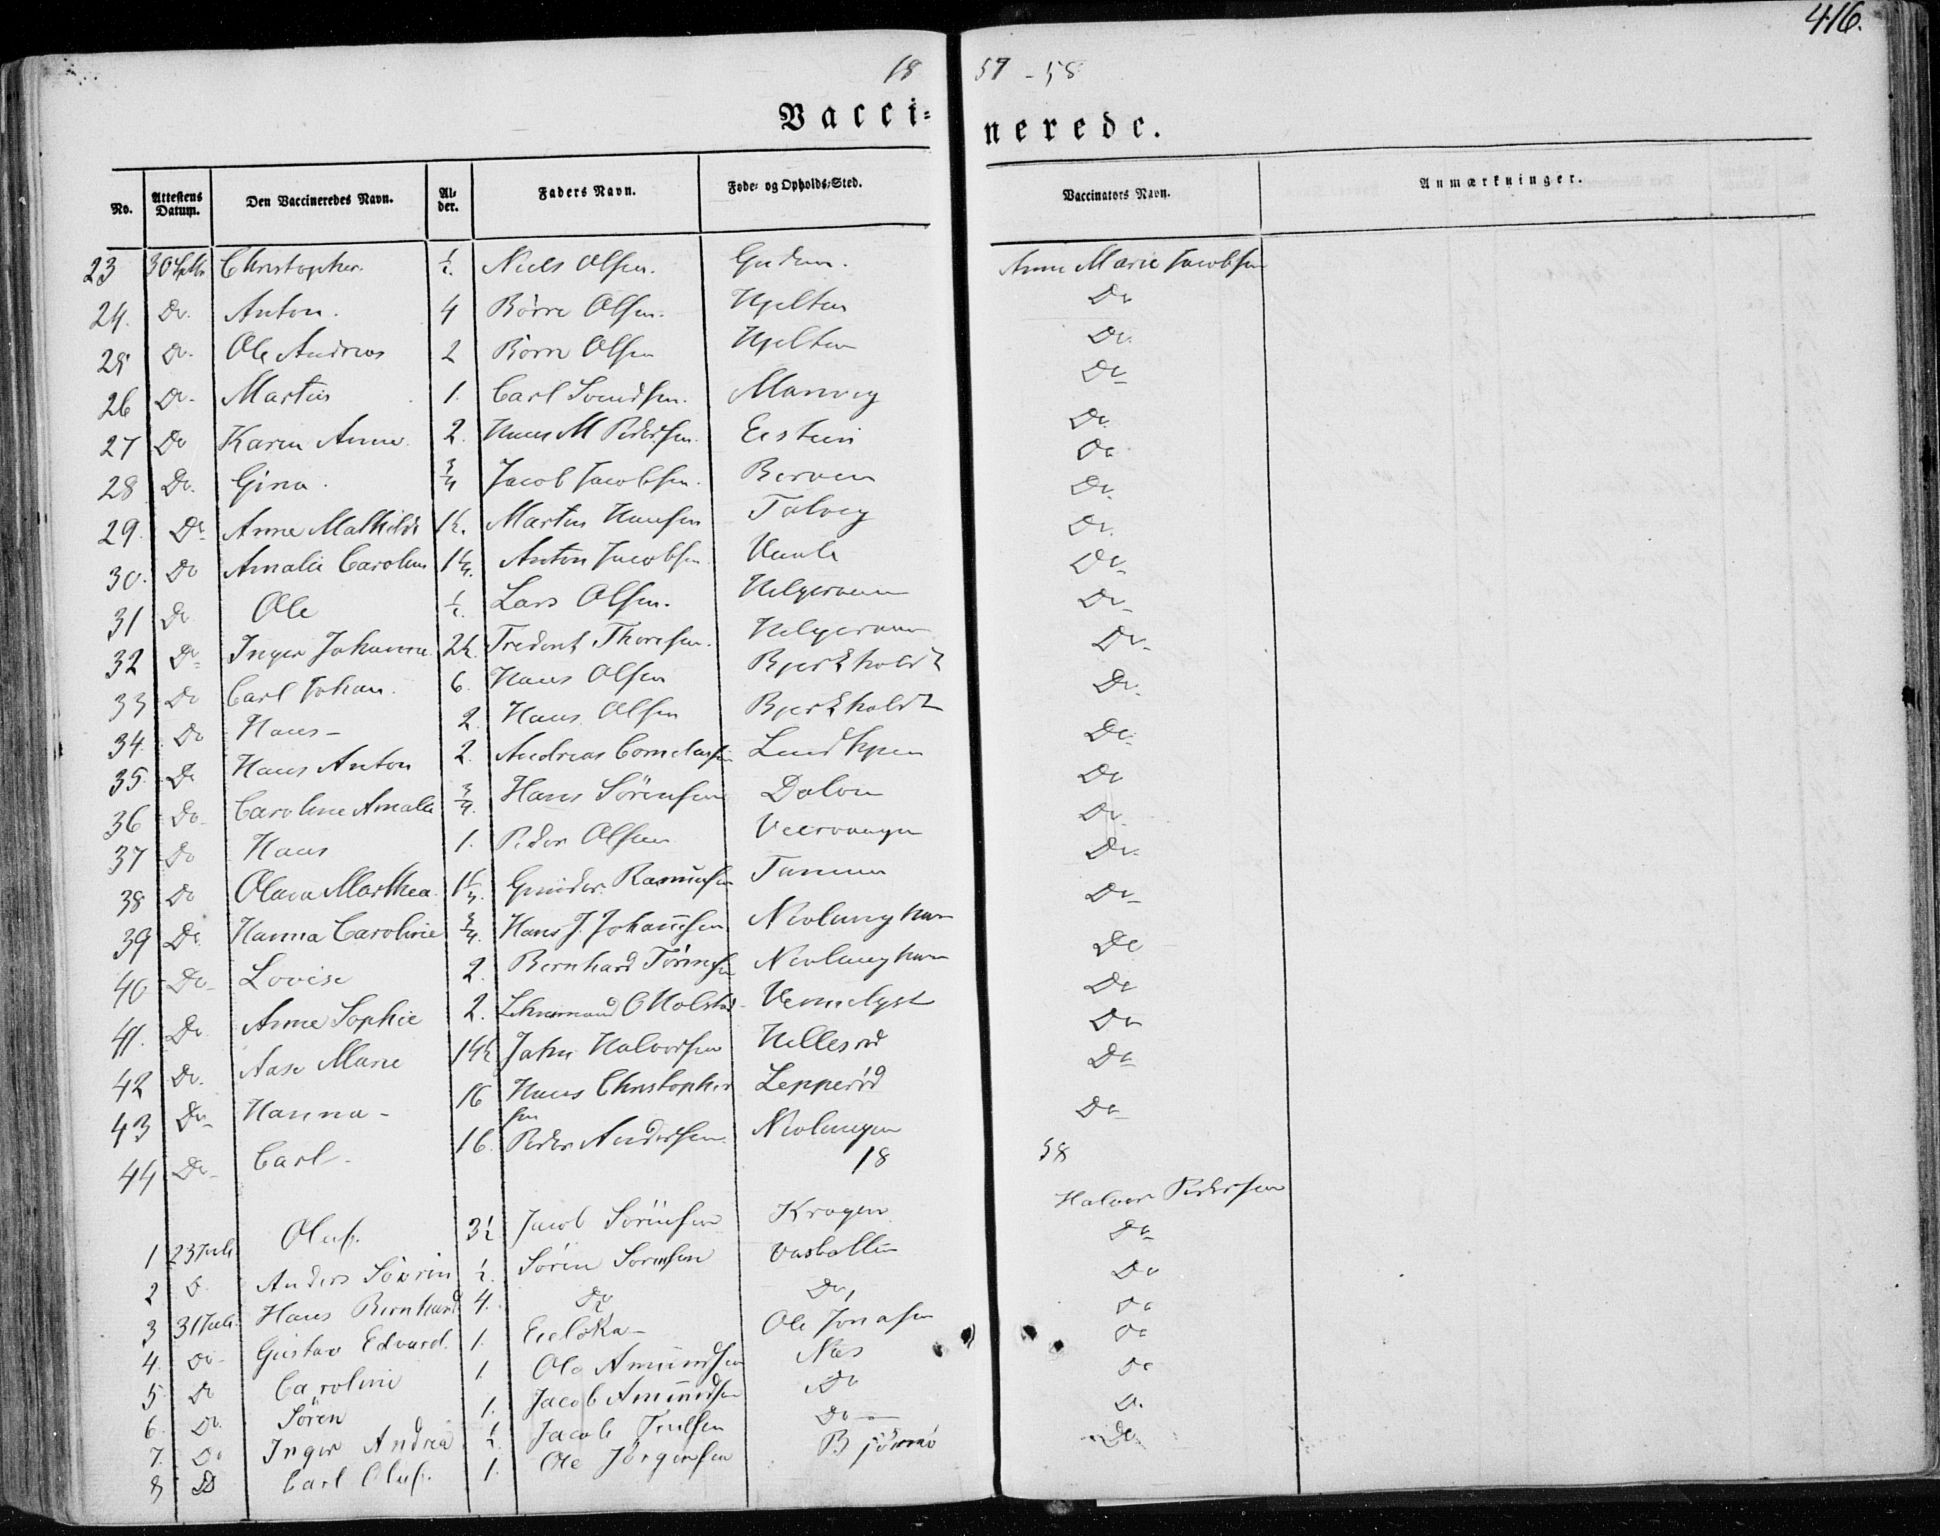 416.
18 57-58
Vacci=nerede.
No. Attestens Datum. Den Vaccineredes Navn. Al=der. Faders Navn. Føde= og Opholds=Sted. Vaccinators Navn. Anmærkninger.
23 30 Septbr Christopher. ½. Niels Olsen. Gudem. Anne Marie Jacobsen
24. Do. Anton. 4 Börre Olsen. Hjelten Do
25 Do. Ole Andreas 2 Börre Olsen Hjelten Do.
26 Do. Martin 1. Carl Svendsen. Manvig Do
27 Do Karen Anne 2. Hans M Pedersen. Eestein Do.
28 Do. Gina. ¾ Jacob Jacobsen. Berven Do
29. Do Anne Mathilde 1½. Martin Hansen Talvig Do.
30. Do Amalie Caroline 1¼. Anton Jacobsen Do.
31 Do Ole ½. Lars Olsen. Helgeroen Do
32 Do Inger Johanna 2½. Thoresen. Helgeroen Do
33 Do Carl Johan. 6. Hans Olsen Bjerkholdt Do.
34 Do Hans - 2. Hans Olsen Bjerkholdt Do.
35. Do Hans Anton 2. Andreas Corneliussen Do
36 Do Caroline Amalie ¾. Hans Sörensen Dalen Do
37 Do Hans 1. Peder Olsen Do.
38 Do Olava Marthea 1¼. Gunder Rasmusen Tanum Do.
39 Do. Hanna Caroline ¾. Hans J. Johannsen Nevlunghavn Do
40 Do Lovise 2. Bernhard Nevlunghavn Do
41. Do Anne Sophie 2. O Holsted Vennelyst Do
42 Do. Aase Marie 14½ John Halvorsen Hellesrød Do
43 Do Hanna - 16 Hans Christophersen Lepperød Do
44 Do Carl - 16. Peder Andersen Nevlungen Do
18 58
1 23 Juli Oluf. 3½ Jacob Sörensen Krogen Halvor Pedersen
2 D. Anders Sörin ½. Sörin Sörensen Do
3 31 Juli. Hans Bernhard 4. Do Do, Do
4. Do Gustav Edvard. 1. Ole Jonasen Do
5. Do Caroline 1 Ole Amundsen Næs Do
6. Do. Sören 1. Jacob Amundsen Do Do
7. Do Inger Andrea ½. Jacob Do - D.
8 D Carl Oluf. 1. Ole Jörgensen Do